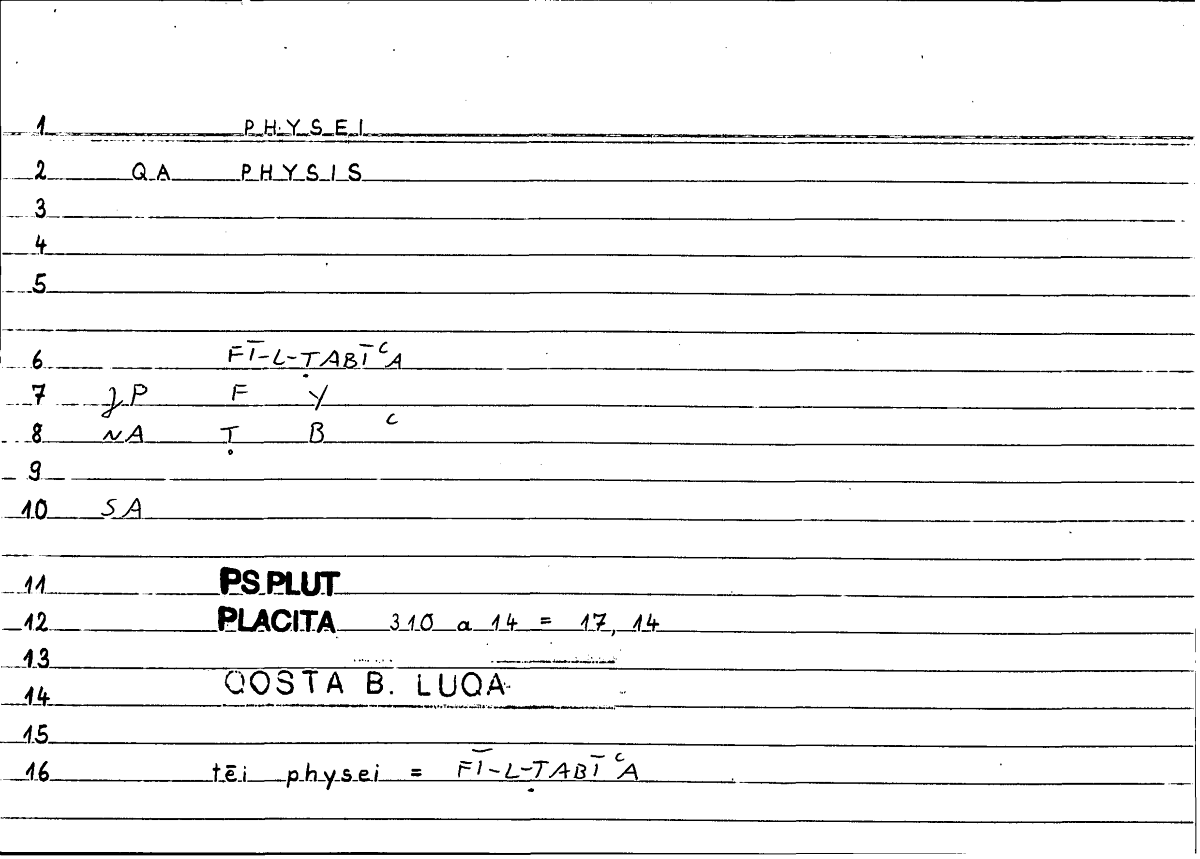 1 PHYSEI
2 QA PHYSIS
3
4
5
6 FĪ-L-ṬABĪʿA
7 ȷP F Y
8 NA Ṭ B ʿ
9
10 SA
11 PS PLUT
12 PLACITA 310 a 14 = 17, 14
13
14 QOSTA B. LUQA
15
16 tēi physei = FĪ-L-ṬABĪʿA